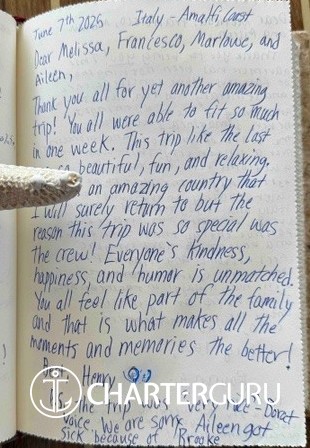 June 7th 2025 Italy - Amalfi Coast
Dear Melissa, Francesco, Marlowe, and
Aileen,
Thank you all for yet another amazing
trip! You all were able to fit so much
in one week. This trip like the last
so beautiful, fun, and relaxing.
an amazing country that
I will surely return to but the
reason this trip was so special was
the crew! Everyone's kindness,
happiness, and humor is unmatched.
You all feel like part of the family
and that is what makes all the
moments and memories the better!
Best, Henry
CHARTERGURU
the trip was "very nice" -
voice. We are sorry Aileen got
sick because of Brooke